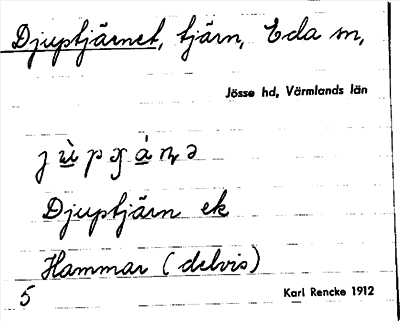 Djuptjärnet, tjärn, Eda sn,
Jösse hd, Värmlands län
Djuptjärn ek
Hammar (delvis)
5
Karl Rencke 1912